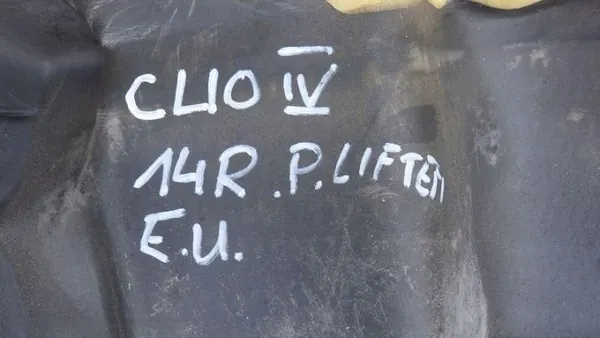 CLIO IV
14R. P. LIFTEM
E.U.